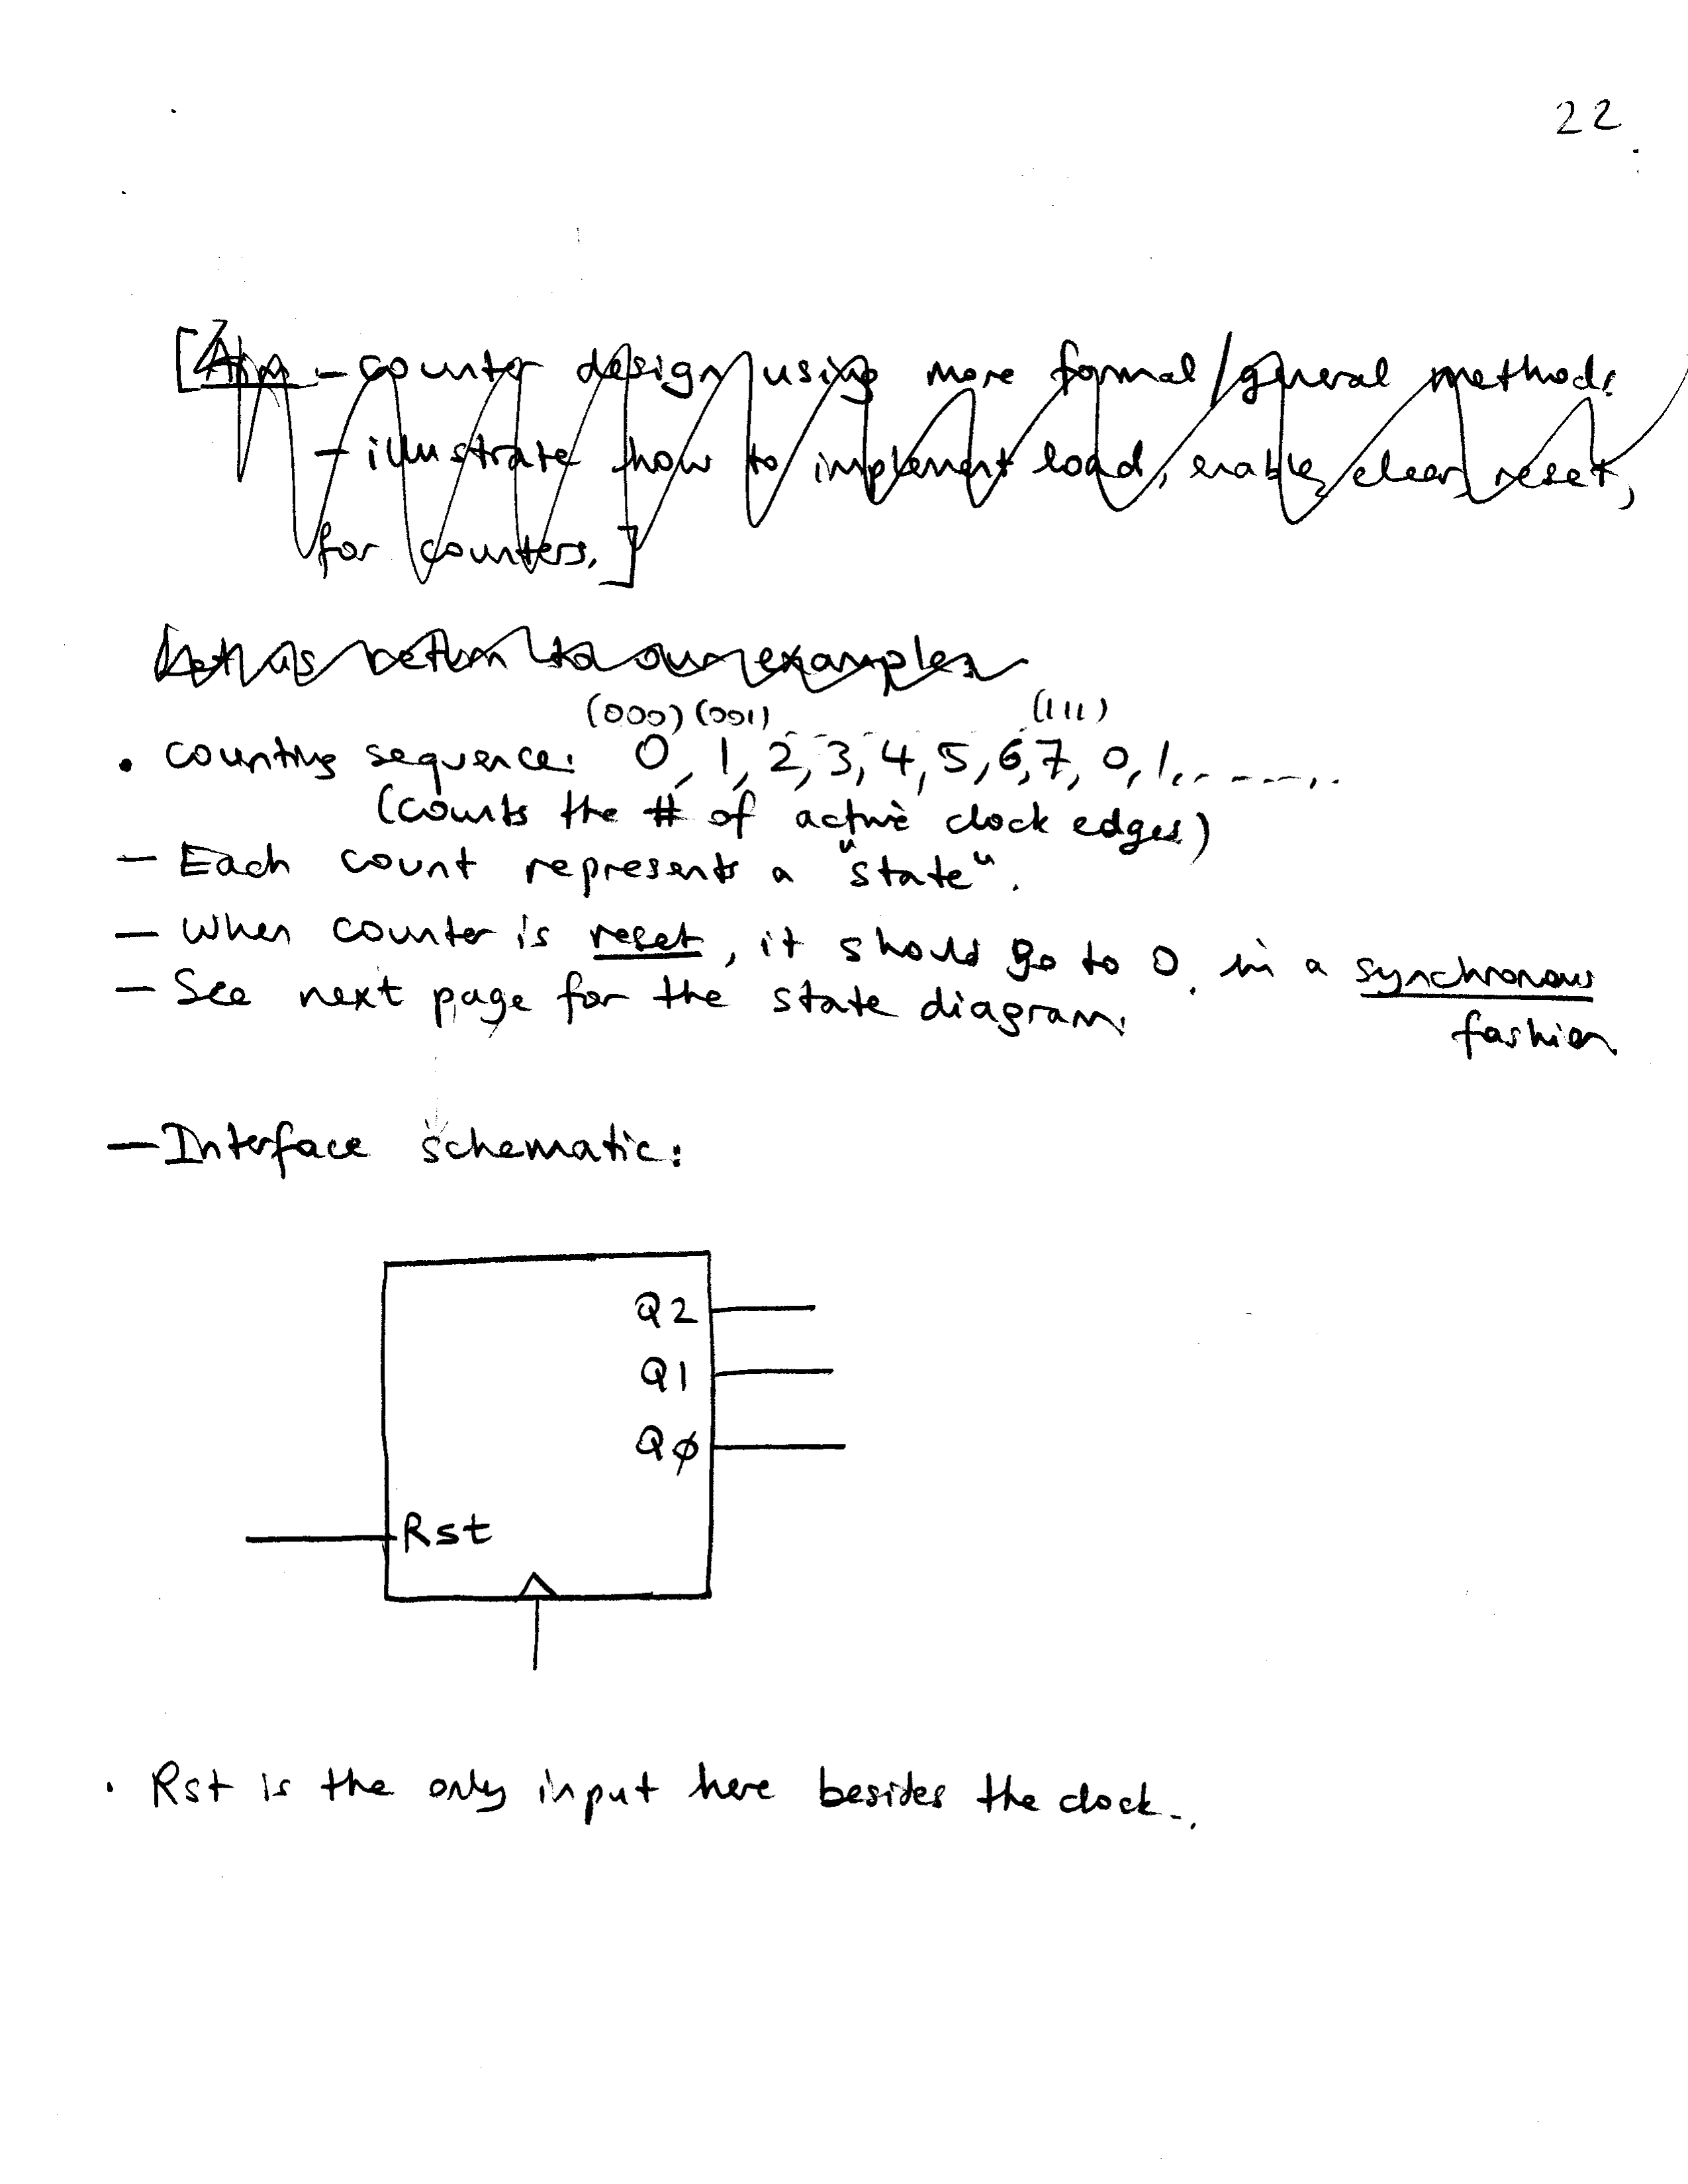 22
[Aim - counter design using more formal/general methods
- illustrate how to implement load, enable, clear, reset,
for counters.]
Let us return to our examples
(000) (001) (111)
• counting sequence: 0, 1, 2, 3, 4, 5, 6, 7, 0, 1, . - - - - , .
(counts the # of active clock edges)
— Each count represents a "state".
— When counter is reset, it should go to 0, in a synchronous
fashion.
— See next page for the state diagram.
— Interface schematic:
Q2
Q1
QØ
Rst
• Rst is the only input here besides the clock.